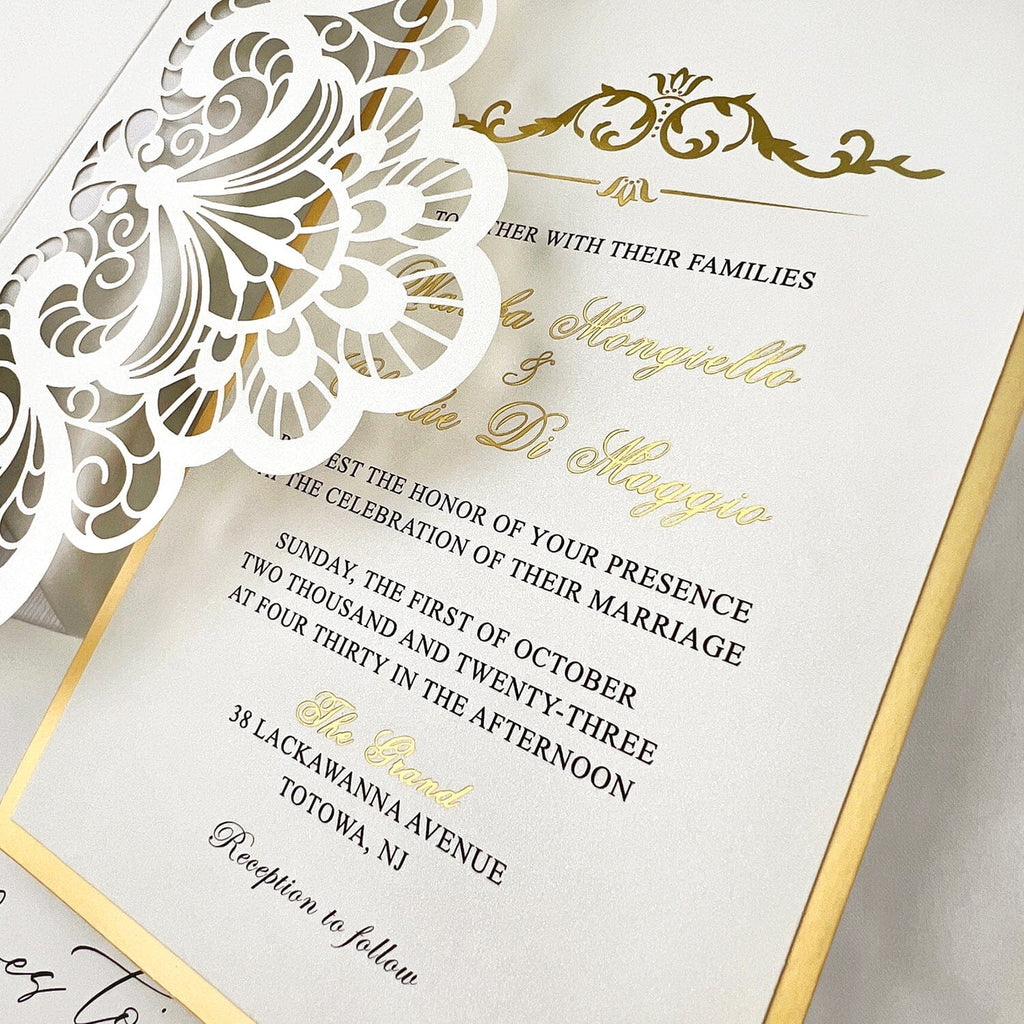 WITH THEIR FAMILIES
Mongiello
&
Di Maggio
THE HONOR OF YOUR PRESENCE
THE CELEBRATION OF THEIR MARRIAGE
SUNDAY, THE FIRST OF OCTOBER
TWO THOUSAND AND TWENTY-THREE
AT FOUR THIRTY IN THE AFTERNOON
The Grand
38 LACKAWANNA AVENUE
TOTOWA, NJ
Reception to follow